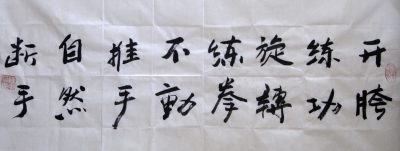 开胯
练功
旋轉
练拳
不動
推手
自然
断手